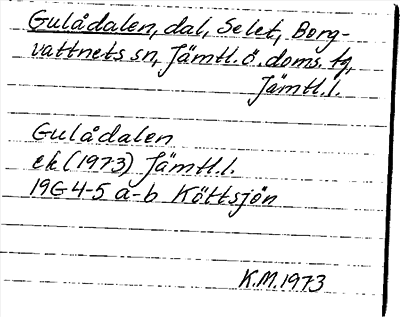 Gulådalen, dal, Selet, Borg-
vattnets sn, Jämtl. ö. doms. tg,
Jämtl. l.
Gulådalen
ek (1973) Jämtl. l.
19G 4-5 a-b Köttsjön
K.M. 1973